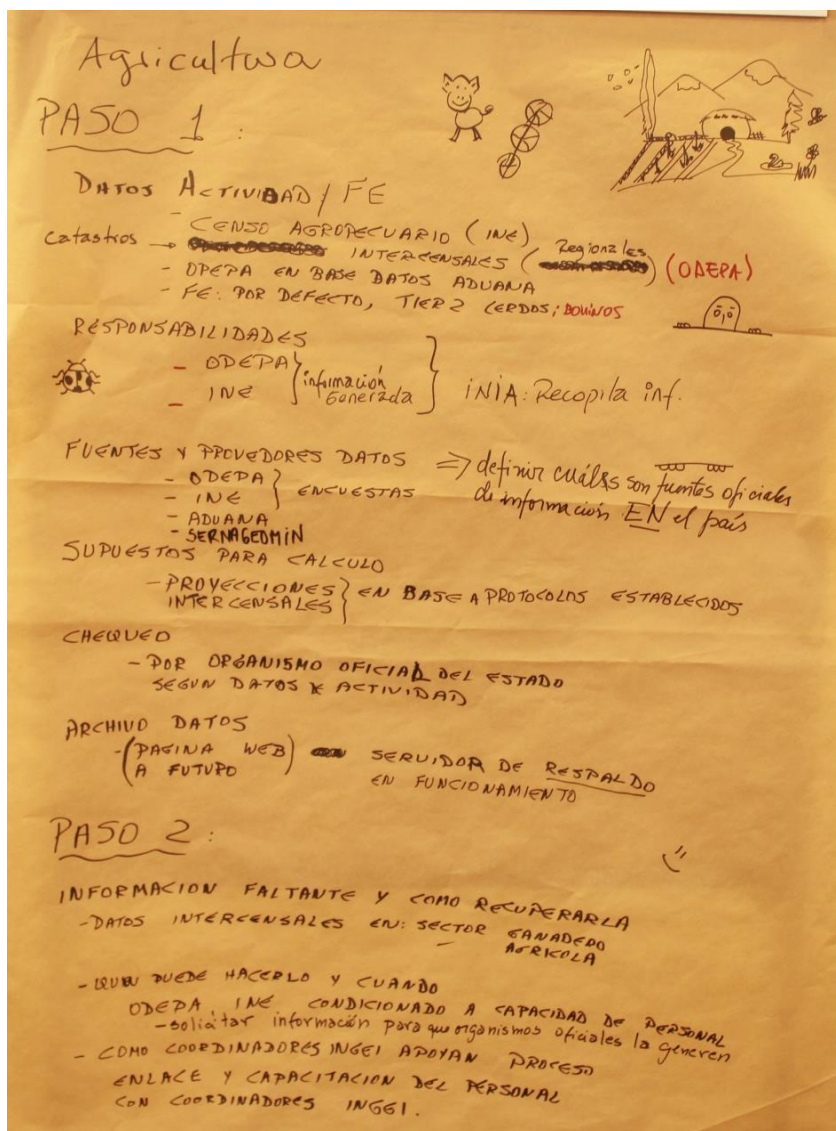 Agricultura
PASO 1 :
DATOS ACTIVIDAD / FE
- CENSO AGROPECUARIO (INE)
Catastros → INTERCENSALES (Regionales) (ODEPA)
- ODEPA EN BASE DATOS ADUANA
- FE: POR DEFECTO, TIER 2 CERDOS; BOVINOS
RESPONSABILIDADES
- ODEPA
- INE
información Generada
INIA: Recopila inf.
FUENTES Y PROVEDORES DATOS
- ODEPA
- INE
ENCUESTAS
- ADUANA
- SERNAGEOMIN
⇒ definir cuáles son fuentes oficiales
de información EN el país
SUPUESTOS PARA CALCULO
- PROYECCIONES
INTERCENSALES
EN BASE A PROTOCOLOS ESTABLECIDOS
CHEQUEO
- POR ORGANISMO OFICIAL DEL ESTADO
SEGUN DATOS ACTIVIDAD
ARCHIVO DATOS
- (PAGINA WEB
A FUTURO)
SERVIDOR DE RESPALDO
EN FUNCIONAMIENTO
PASO 2 :
INFORMACION FALTANTE Y COMO RECUPERARLA
- DATOS INTERCENSALES EN: SECTOR GANADERO
- AGRICOLA
- QUIEN PUEDE HACERLO Y CUANDO
ODEPA, INE CONDICIONADO A CAPACIDAD DE PERSONAL
- solicitar información para que organismos oficiales la generen
- COMO COORDINADORES INGEI APOYAN PROCESO
ENLACE Y CAPACITACION DEL PERSONAL
CON COORDINADORES INGEI.